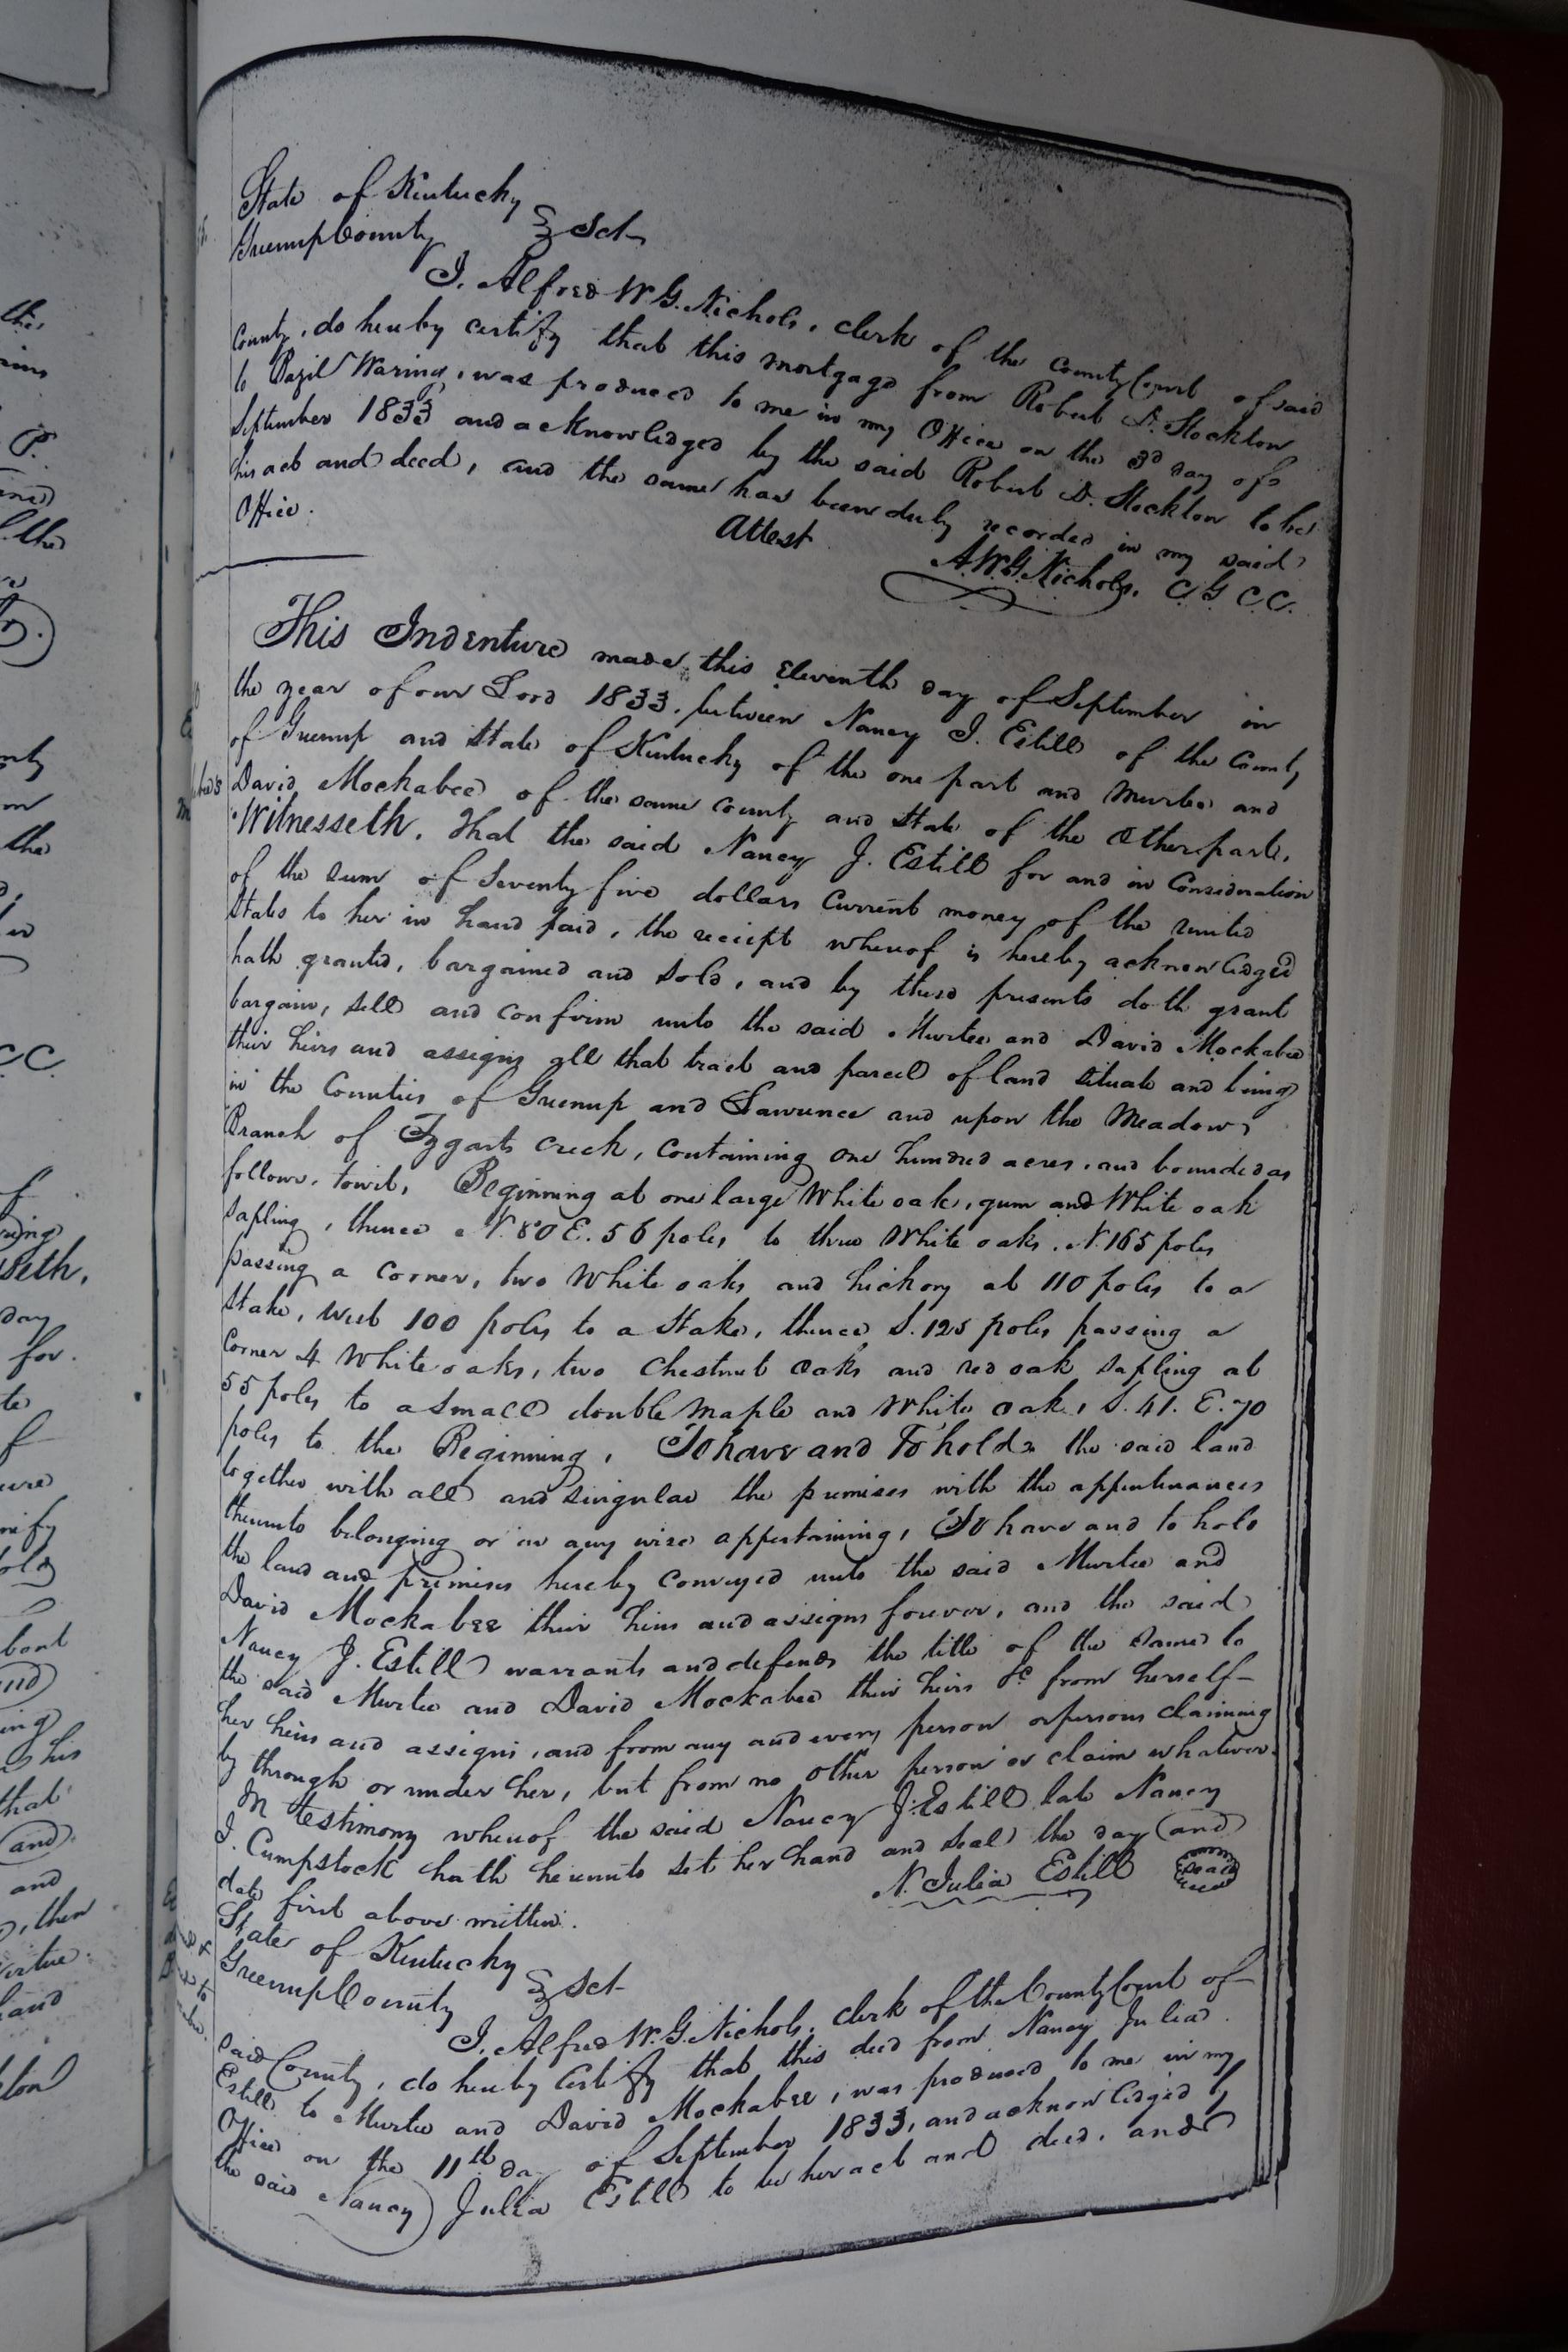 State of Kentucky
Greenup County } Sct
I. Alfred W. G. Nichols, clerk of the County Court of said
County, do hereby certify that this mortgage from Robert D. Stockton
to Bazil Waring, was produced to me in my Office on the 3d day of
September 1833 and acknowledged by the said Robert D. Stockton to be
his act and deed, and the same has been duly recorded in my said
Office.
Attest
A. W. G. Nichols. C. G. C. C.
This Indenture made this Eleventh day of September in
the year of our Lord 1833. between Nancy J. Estill of the County
of Greenup and State of Kentucky of the one part and Murtee and
David Mockabee of the same county and State of the Other part.
Witnesseth. That the said Nancy J. Estill for and in Consideration
of the sum of Seventy five dollars Current money of the united
States to her in hand paid, the receipt whereof is hereby acknowledged
hath granted, bargained and sold, and by these presents doth grant
bargain, sell and confirm unto the said Murtee and David Mockabee
their heirs and assigns all that tract and parcel of land situate and being
in the Counties of Greenup and Lawrence and upon the Meadow
Branch of Tygarts creek, containing one hundred acres, and bounded as
follows. towit, Beginning at one large White oak, gum and White oak
sapling, thence N. 80 E. 56 poles to three White oaks. N. 165 poles
passing a corner, two White oaks and hickory at 110 poles to a
stake, west 100 poles to a Stake, thence S. 125 poles passing a
corner 4 White oaks, two Chestnut oaks and red oak sapling at
55 poles to a small double maple and White oak, S. 41. E. 70
poles to the Beginning, To have and To hold the said land
together with all and singular the premises with the appurtenances
thereunto belonging or in any wise appertaining, To have and to hold
the land and premises hereby conveyed unto the said Murtee and
David Mockabee their heirs and assigns forever, and the said
Nancy J. Estill warrants and defends the title of the same to
the said Murtee and David Mockabee their heirs &c from herself
her heirs and assigns, and from any and every person or persons claiming
by through or under her, but from no other person or claim whatever.
In testimony whereof the said Nancy J. Estill late Nancy
J. Cumpstock hath hereunto set her hand and seal the day and
date first above written.
N. Julia Estill Seal
State of Kentucky
Greenup County } Sct
I. Alfred W. G. Nichols, clerk of the County Court of
said County, do hereby Certify that this deed from Nancy Julia
Estill to Murtee and David Mockabee, was produced to me in my
Office on the 11th day of September 1833, and acknowledged by
the said Nancy Julia Estill to be her act and deed. and